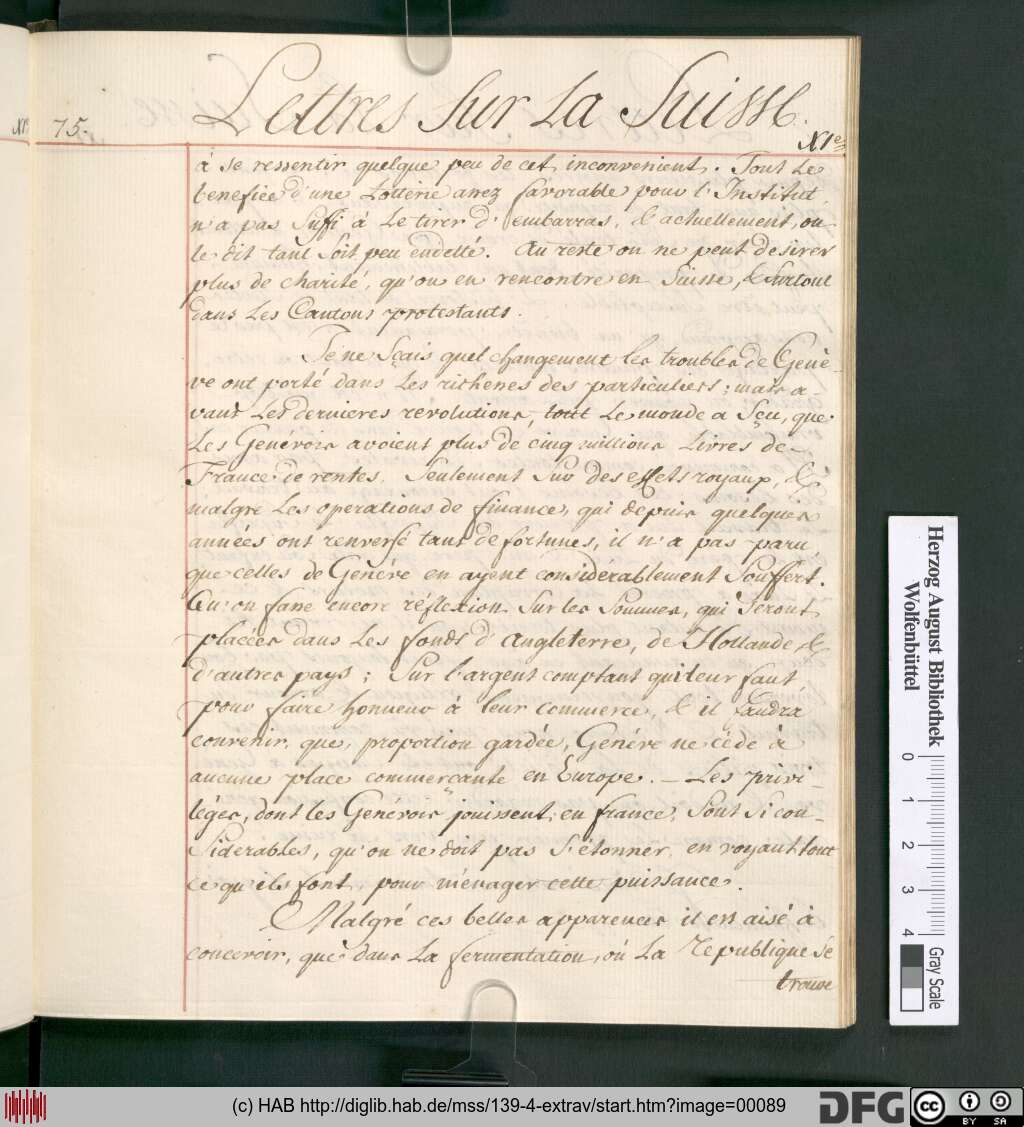 Lettres Sur La Suisse.
75.
XIe
à se ressentir quelque peu de cet inconvenient. Tout le
benefice d'une Lotterie assez favorable pour l'Institut
n'a pas suffi à le tirer d'embarras, & actuellement, on
le dit tant soit peu endetté. Au reste on ne peut desirer
plus de charité, qu'on en rencontre en Suisse, & surtout
dans les Cantons protestants.
Je ne sçais quel changement les troubles de Genè-
ve ont porté dans les richesses des particuliers; mais a-
vant les dernieres revolutions, tout le monde a sçu, que
les Genévois avoient plus de cinq millions Livres de
France de rentes, seulement sur des effets royaux, &
malgré les operations de finance, qui depuis quelques
années ont renversé tant de fortunes, il n'a pas paru
que celles de Genéve en ayent considérablement souffert.
Qu'on fasse encore réflexion sur les sommes, qui seront
placées dans les fonds d'Angleterre, de Hollande &
d'autres pays; sur l'argent comptant qui leur faut
pour faire honneur à leur commerce, & il faudra
convenir, que, proportion gardée, Genéve ne cède à
aucune place commerçante en Europe. — Les privi-
léges, dont les Genévois jouissent en france, sont si con-
siderables, qu'on ne doit pas s'étonner en voyant tout
ce qu'ils font pour ménager cette puissance.
Malgré ces belles apparences il est aisé à
concevoir, que dans la fermentation, où la Republique se
trouve
Herzog August Bibliothek
Wolfenbüttel
0 1 2 3 4
Gray Scale
(c) HAB http://diglib.hab.de/mss/139-4-extrav/start.htm?image=00089
DFG
cc BY SA